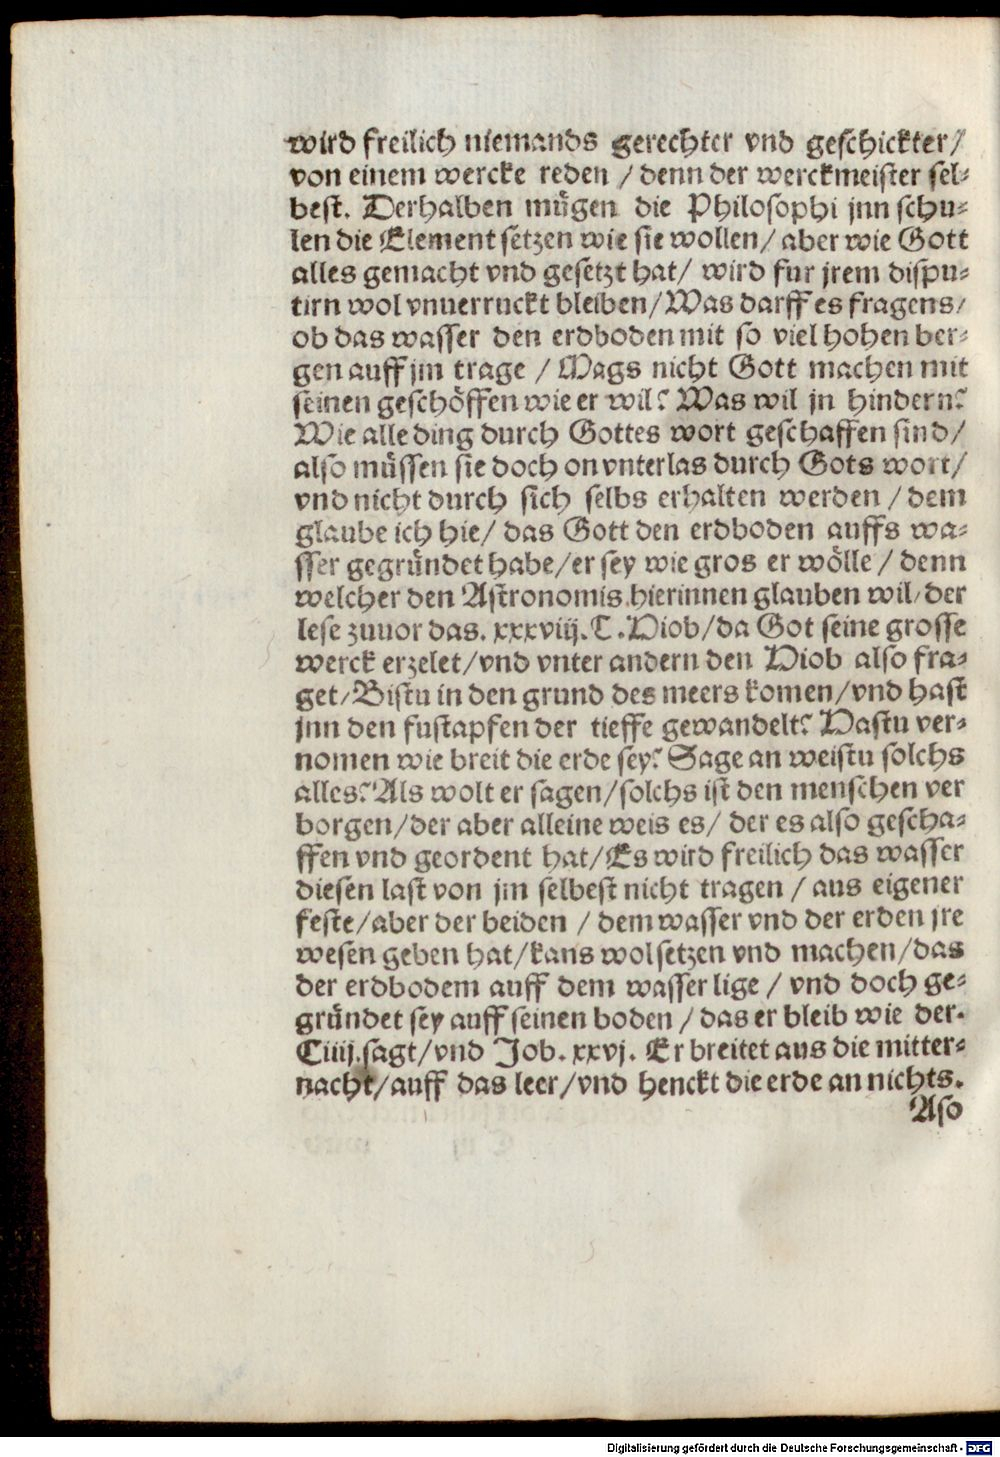 wird freilich niemands gerechter vnd geschickter/
von einem wercke reden / denn der werckmeister sel-
best. Derhalben mügen die Philosophi jnn schu-
len die Element setzen wie sie wollen/ aber wie Gott
alles gemacht vnd gesetzt hat/ wird fur jrem dispu-
tirn wol vnuerruckt bleiben/Was darff es fragens/
ob das wasser den erdboden mit so viel hohen ber-
gen auff jm trage / Mags nicht Gott machen mit
seinen geschöffen wie er wil? Was wil jn hindern?
Wie alle ding durch Gottes wort geschaffen sind/
also müssen sie doch on vnterlas durch Gots wort/
vnd nicht durch sich selbs erhalten werden / dem
glaube ich hie/ das Gott den erdboden auffs wa-
sser gegründet habe/er sey wie gros er wölle / denn
welcher den Astronomis hierinnen glauben wil/der
lese zuuor das. xxxviij. C. Hiob/da Got seine grosse
werck erzelet/vnd vnter andern den Hiob also fra-
get/Bistu in den grund des meers komen/vnd hast
jnn den fustapfen der tieffe gewandelt? Hastu ver-
nomen wie breit die erde sey? Sage an weistu solchs
alles? Als wolt er sagen/solchs ist den menschen ver
borgen/der aber alleine weis es/ der es also gescha-
ffen vnd geordent hat/Es wird freilich das wasser
diesen last von jm selbest nicht tragen / aus eigener
feste/aber der beiden / dem wasser vnd der erden jre
wesen geben hat/kans wol setzen vnd machen/das
der erdbodem auff dem wasser lige / vnd doch ge-
gründet sey auff seinen boden / das er bleib wie der.
Ciiij.sagt/vnd Job. xxvj. Er breitet aus die mitter-
nacht/auff das leer/vnd henckt die erde an nichts.
Aso
Digitalisierung gefördert durch die Deutsche Forschungsgemeinschaft - DFG